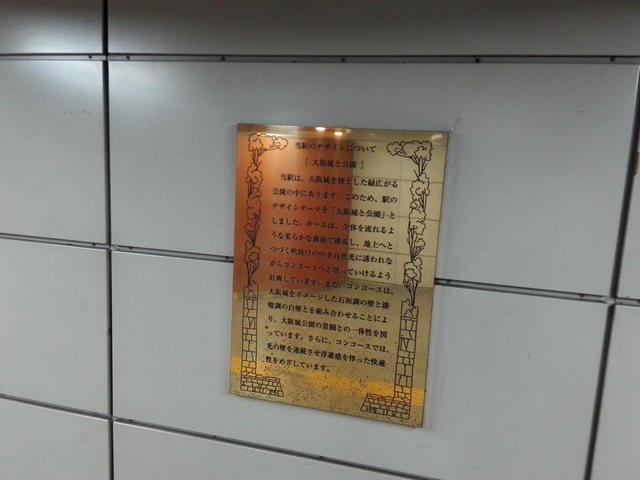 当駅のデザインについて
[ 大阪城と公園 ]
当駅は、大阪城を核とした緑広がる
公園の中にあります。このため、駅の
デザインテーマを「大阪城と公園」と
しました。ホームは、全体を流れるよ
うな柔らかな曲面で構成し、地上へと
つづく吹抜けの中を自然光に誘われな
がらコンコースへと登っていけるよう
計画しています。また、コンコースは、
大阪城をイメージした石垣調の壁と漆
喰調の白壁とを組み合わせることによ
り、大阪城公園の景観との一体性を図
っています。さらに、コンコースでは、
光の壁を連続させ浮遊感を伴った快適
性をめざしています。